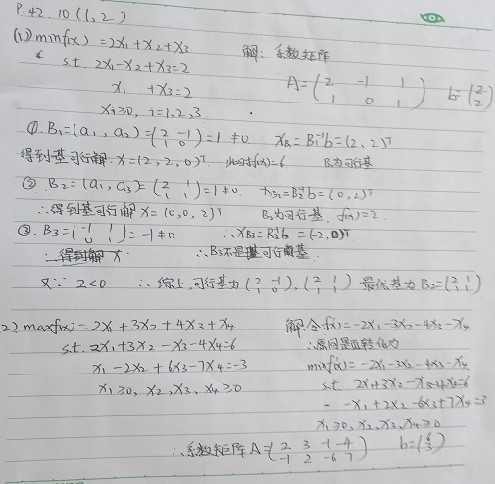 P.42. 10(1,2)
(1) minf(x) = 2x₁+x₂+x₃
解: 系数矩阵
s.t. 2x₁-x₂+x₃=2
A=(2 -1 1
1 0 1) b=(2
2)
x₁ +x₃=2
xᵢ≥0, i=1,2,3
①. B₁=(a₁, a₂)=(2 -1
1 0)=1≠0 x_B₁=B₁⁻¹b=(2, 2)ᵀ
得到基可行解: x=(2, 2, 0)ᵀ. 此时f(x)=6 B₁为可行基
② B₂=(a₁, a₃)=(2 1
1 1)=1≠0. x_B₂=B₂⁻¹b=(0, 2)ᵀ
∴得到基可行解 x=(0, 0, 2)ᵀ B₂为可行基. f(x)=2.
③. B₃=(-1 1
0 1)=-1≠0 ∴x_B₃=B₃⁻¹b=(-2, 0)ᵀ
∴得到解 x ∴B₃不是可行基.
又∵ 2<0 ∴综上, 可行基为(2 -1
1 0), (2 1
1 1) 最优基为B₂=(2 1
1 1)
2) maxf(x)= 2x₁+3x₂+4x₃+x₄
解 令f(x)=-2x₁-3x₂-4x₃-x₄
s.t. 2x₁+3x₂-x₃-4x₄=6
∴原问题转化为
x₁-2x₂+6x₃-7x₄=-3
minf(x)=-2x₁-3x₂-4x₃-x₄
x₁≥0, x₂, x₃, x₄≥0
s.t. 2x₁+3x₂-x₃-4x₄=6
-x₁+2x₂-6x₃+7x₄=3
x₁≥0, x₂, x₃, x₄≥0
∴系数矩阵A=(2 3 -1 -4
-1 2 -6 7) b=(6
3)